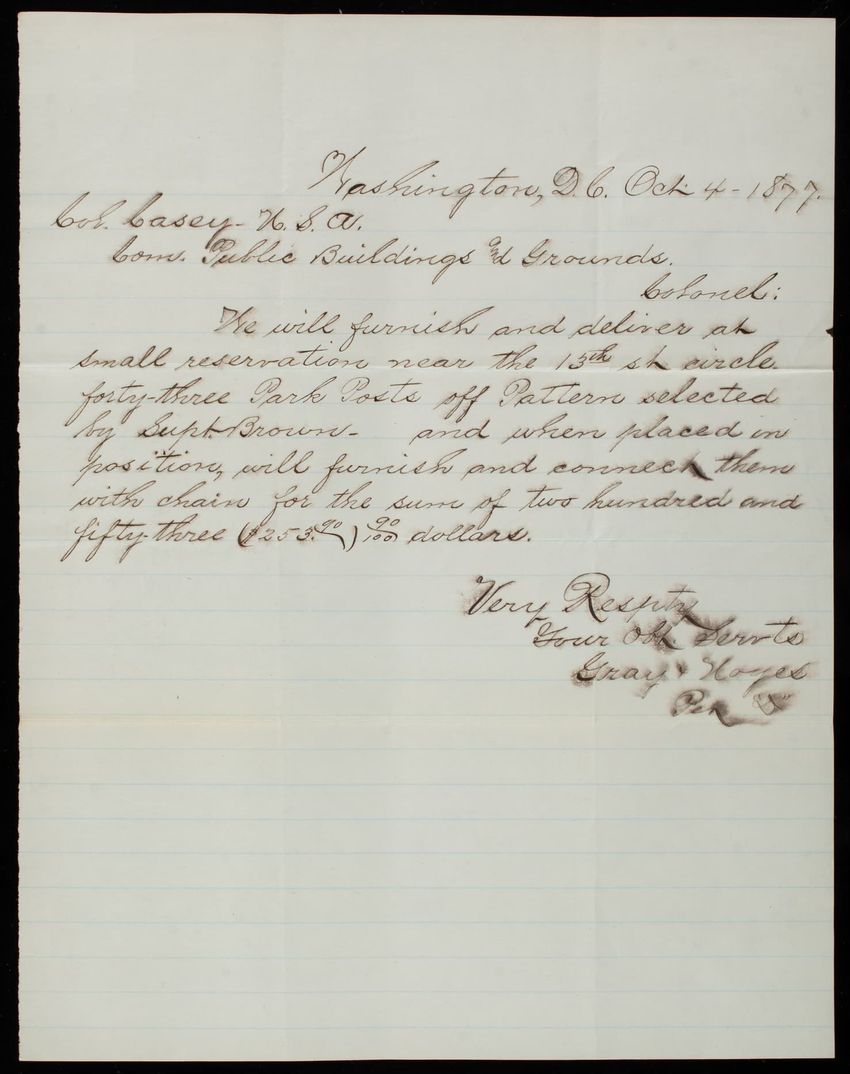 Washington, D.C. Oct 4 - 1877.
Col. Casey - U.S.A.
Com. Public Buildings and Grounds.
Colonel:
We will furnish and deliver at
small reservation near the 13th st circle
forty-three Park Posts off Pattern selected
by Supt. Brown - and when placed in
position, will furnish and connect them
with chain for the sum of two hundred and
fifty-three ($253.90) 90/100 dollars.
Very Respty
Your Obt. Servts
Gray & Noyes
Per